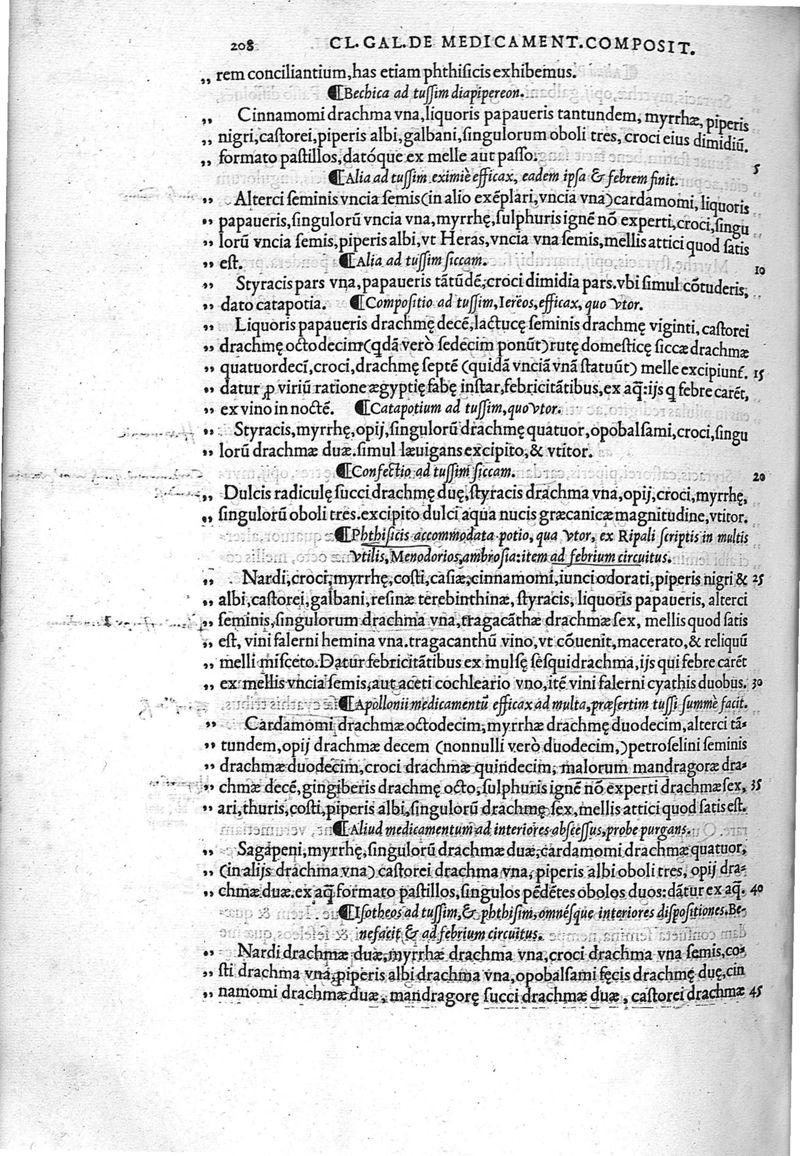 208 CL. GAL. DE MEDICAMENT. COMPOSIT.
„ rem conciliantium, has etiam phthisicis exhibemus.
¶Bechica ad tussim diapipereon.
„ Cinnamomi drachma vna, liquoris papaueris tantundem, myrrhæ, piperis
„ nigri, castorei, piperis albi, galbani, singulorum oboli tres, croci eius dimidiũ.
„ formato pastillos, datóque ex melle aut passo. 5
¶Alia ad tussim eximiè efficax, eadem ipsa & febrem finit.
„ Alterci seminis vncia semis (in alio exẽplari, vncia vna) cardamomi, liquoris
„ papaueris, singulorũ vncia vna, myrrhę, sulphuris ignẽ nõ experti, croci, singu
„ lorũ vncia semis, piperis albi, vt Heras, vncia vna semis, mellis attici quod satis
„ est. ¶Alia ad tussim siccam. 10
„ Styracis pars vna, papaueris tãtũdẽ, croci dimidia pars. vbi simul cõtuderis,
„ dato catapotia. ¶Compositio ad tussim, Iereos, efficax, quo vtor.
„ Liquoris papaueris drachmę decẽ, lactucę seminis drachmę viginti, castorei
„ drachmę octodecim (qdã verò sedecim ponũt) rutę domesticę siccæ drachmæ
„ quatuordecĩ, croci, drachmę septẽ (quidã vnciã vnã statuũt) melle excipiunt. 15
„ datur p viriũ ratione ægyptię fabę instar, febricitãtibus, ex aq: ijs q febre carẽt,
„ ex vino in noctẽ. ¶Catapotium ad tussim, quo vtor.
„ Styracis, myrrhę, opij, singulorũ drachmę quatuor, opobalsami, croci, singu
„ lorũ drachmæ duæ. simul læuigans excipito, & vtitor.
¶Confectio ad tussim siccam. 20
„ Dulcis radiculę succi drachmę duę, styracis drachma vna, opij, croci, myrrhę,
„ singulorũ oboli tres. excipito dulci aqua nucis græcanicæ magnitudine, vtitor.
¶Phthisicis accommodata potio, qua vtor, ex Ripali scriptis in multis
vtilis, Menodorios, ambrosia: item ad febrium circuitus.
„ Nardi, croci, myrrhę, costi, casiæ, cinnamomi, iunci odorati, piperis nigri & 25
„ albi, castorei, galbani, resinæ terebinthinæ, styracis, liquoris papaueris, alterci
„ seminis, singulorum drachma vna, tragacãthæ drachmæ sex, mellis quod satis
„ est, vini falerni hemina vna. tragacanthũ vino, vt cõuenit, macerato, & reliquũ
„ melli misceto. Datur febricitãtibus ex mulsę sesquidrachma, ijs qui febre carẽt
„ ex mellis vncia semis, aut aceti cochleario vno, itẽ vini falerni cyathis duobus. 30
¶Apollonii medicamentũ efficax ad multa, præsertim tussi summè facit.
„ Cardamomi drachmæ octodecim, myrrhæ drachmę duodecim, alterci tã-
„ tundem, opij drachmæ decem (nonnulli verò duodecim,) petroselini seminis
„ drachmæ duodecim, croci drachmæ quindecim, malorum mandragoræ dra-
„ chmæ decẽ, gingiberis drachmę octo, sulphuris ignẽ nõ experti drachmæ sex, 35
„ ari, thuris, costi, piperis albi, singulorũ drachmę sex, mellis attici quod satis est.
¶Aliud medicamentum ad interiores abscessus, probe purgans.
„ Sagapeni, myrrhę, singulorũ drachmæ duæ, cardamomi drachmæ quatuor,
„ (in alijs drachma vna) castorei drachma vna, piperis albi oboli tres, opij dra-
„ chmæ duæ. ex aq formato pastillos, singulos pẽdẽtes obolos duos: dãtur ex aq. 40
¶Isotheos ad tussim, & phthisim, omnésque interiores dispositiones. Be-
nefacit & ad febrium circuitus.
„ Nardi drachmæ duæ, myrrhæ drachma vna, croci drachma vna semis, co-
„ sti drachma vna, piperis albi drachma vna, opobalsami fęcis drachmę duę, cin
„ namomi drachmæ duæ, mandragorę succi drachmæ duæ, castorei drachmæ 45